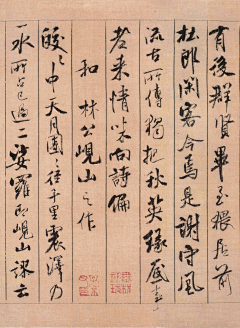 有後群賢畢至猥居前
杜郎閑客今焉是謝守風
流古所傳獨把秋英緣底事
老来情味向詩偏
和林公峴山之作
皎々中天月團々徑千里震澤乃
一水所占已過二娑羅即峴山謬云